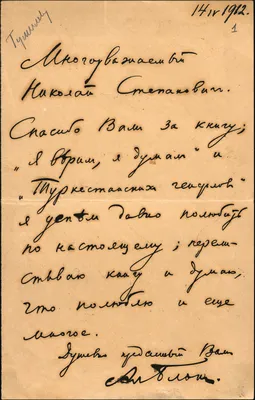 14 IV 1912.
1
Гумилеву
Многоуважаемый
Николай Степанович.
Спасибо Вам за книгу;
"Я верил, я думал" и
"Туркестанских генералов"
я успел давно полюбить
по настоящему; перели-
стываю книгу и думаю,
что полюблю и еще
многое.
Душевно преданный Вам
Ал. Блок.